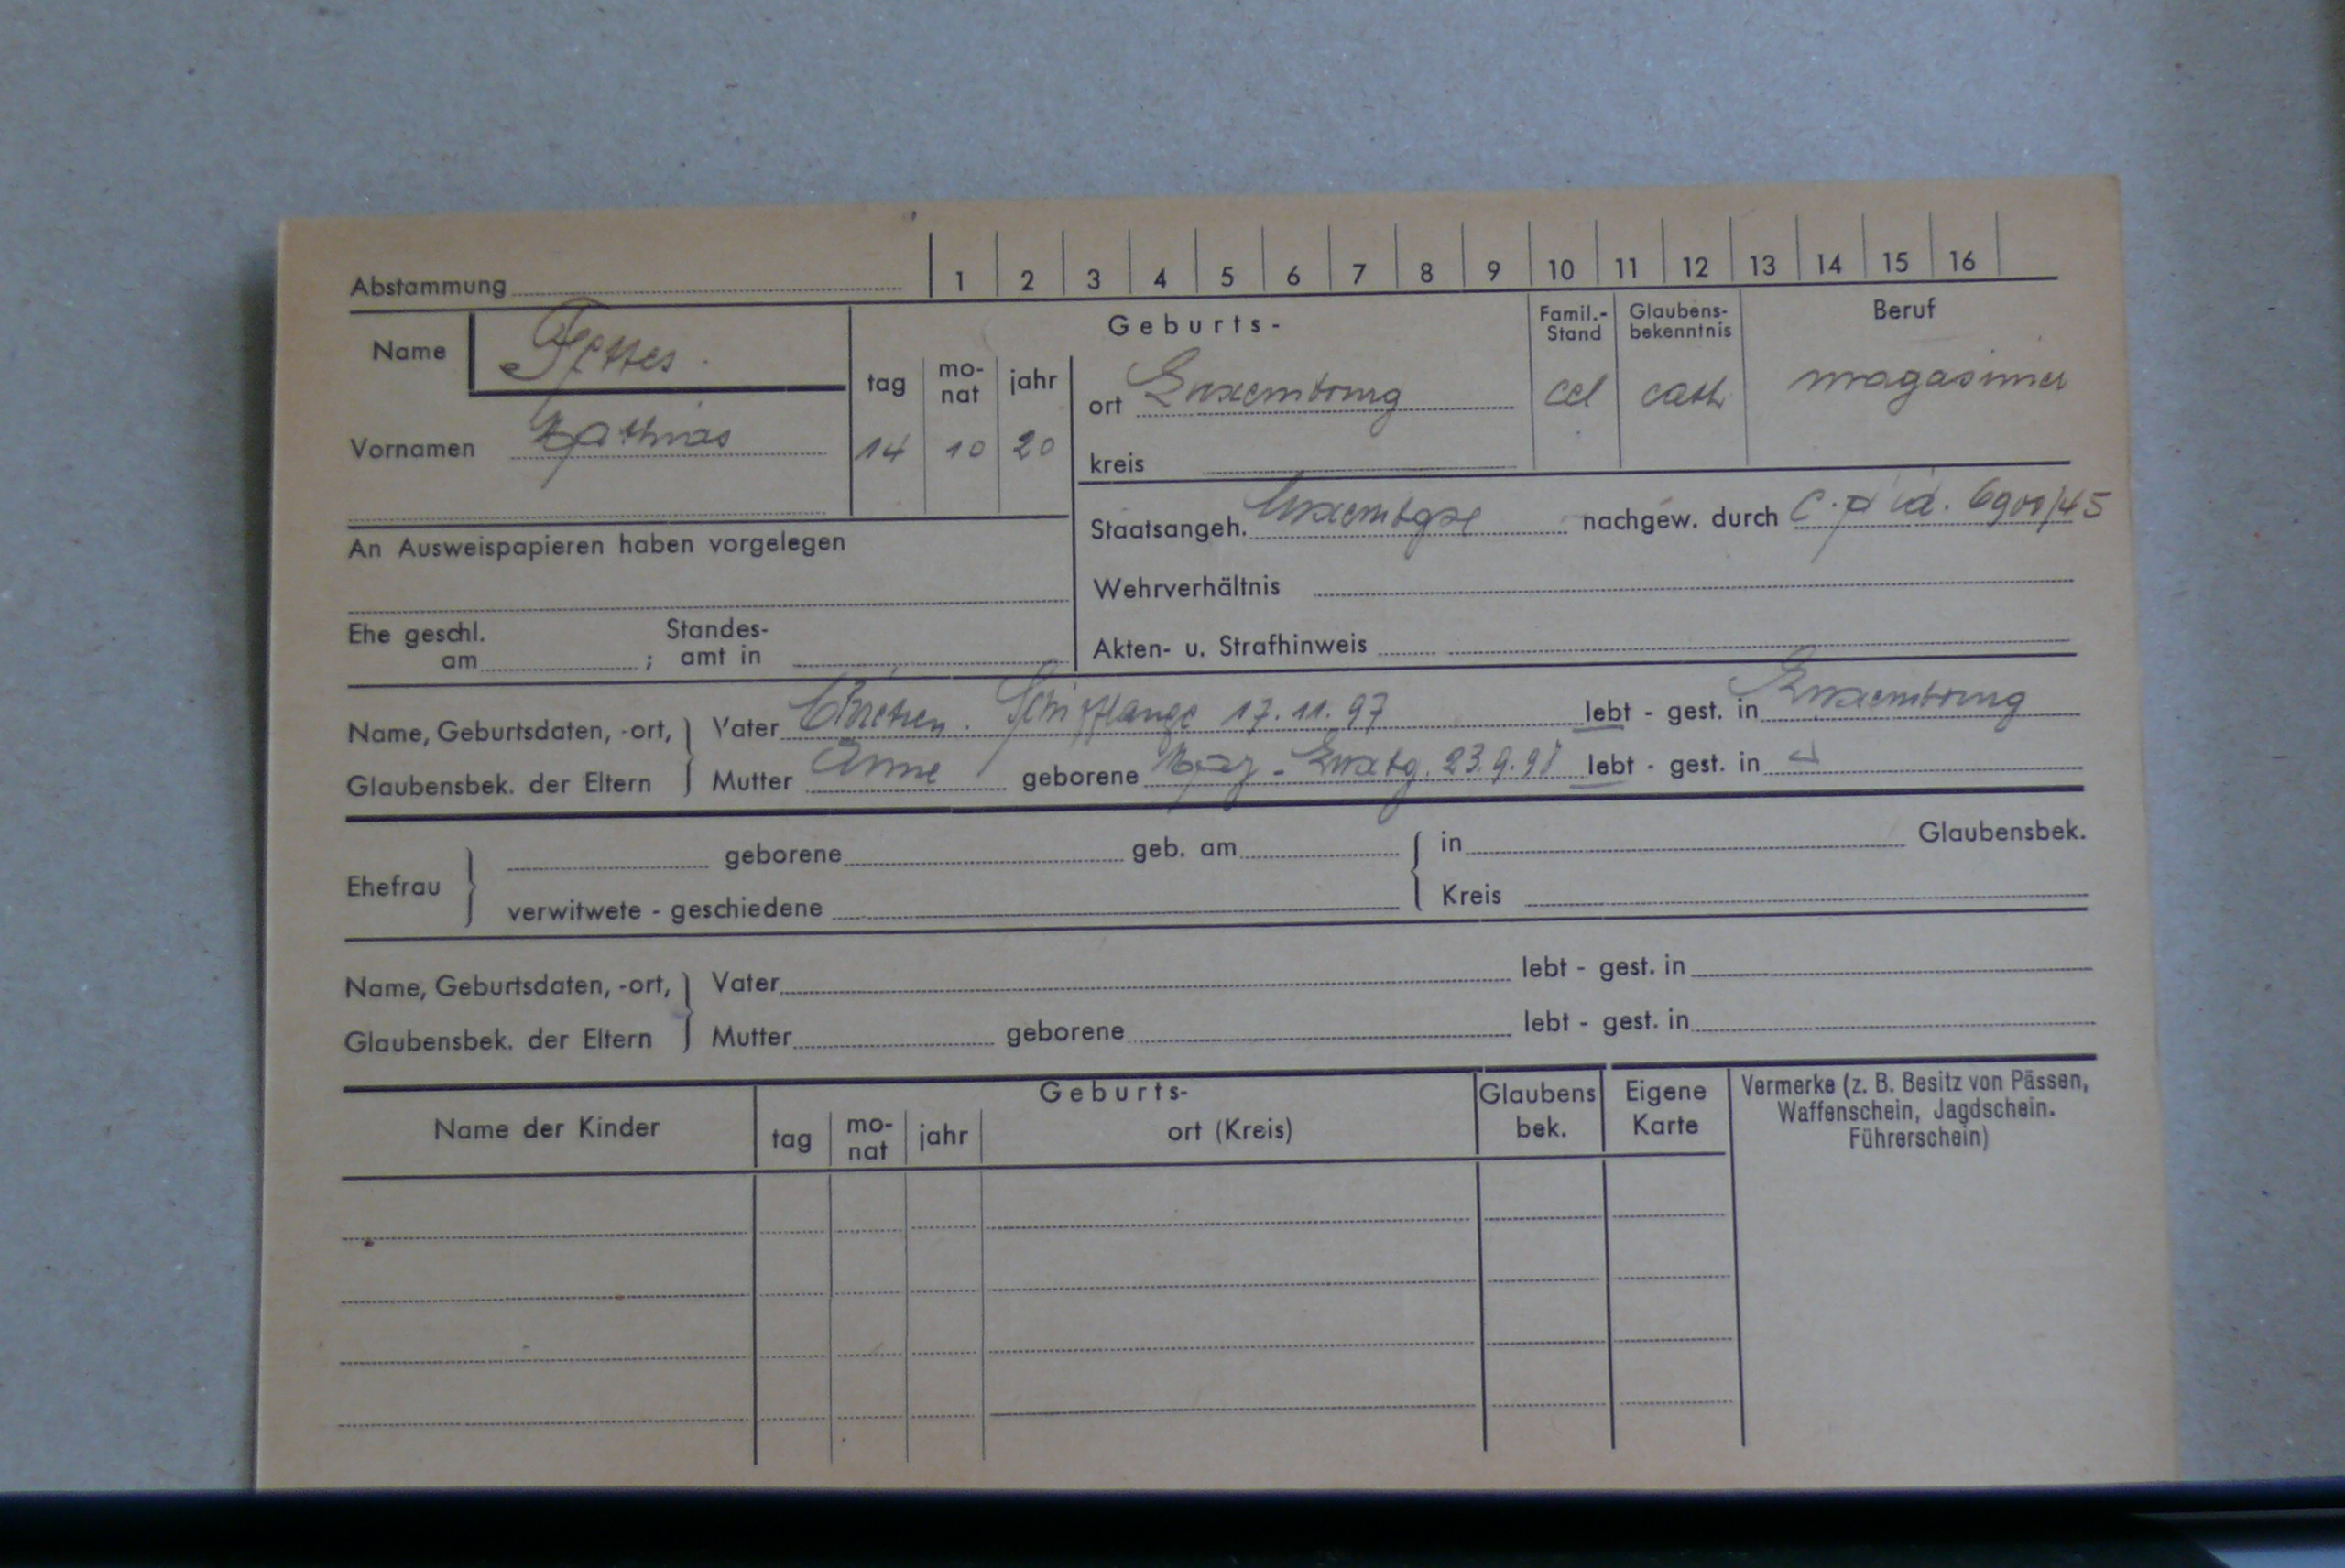 Abstammung 1 2 3 4 5 6 7 8 9 10 11 12 13 14 15 16
Name Fettes.
Geburts-
Famil.-Stand Glaubens-bekenntnis Beruf
tag mo-nat jahr ort Luxembourg cel cath magasinier
Vornamen Mathias 14 10 20 kreis
Staatsangeh. luxembgse nachgew. durch c.p. id. 6900/45
An Ausweispapieren haben vorgelegen
Wehrverhältnis
Ehe geschl. am ; Standes-amt in
Akten- u. Strafhinweis
Name, Geburtsdaten, -ort, Vater Chrétien. Schifflange 17.11.97 lebt - gest. in Luxembourg
Glaubensbek. der Eltern Mutter Anne geborene May - Luxbg. 23.9.98 lebt - gest. in
Ehefrau
geborene geb. am in Glaubensbek.
verwitwete - geschiedene Kreis
Name, Geburtsdaten, -ort, Vater lebt - gest. in
Glaubensbek. der Eltern Mutter geborene lebt - gest. in
Name der Kinder
Geburts-
tag mo-nat jahr ort (Kreis)
Glaubens bek.
Eigene Karte
Vermerke (z. B. Besitz von Pässen,
Waffenschein, Jagdschein.
Führerschein)